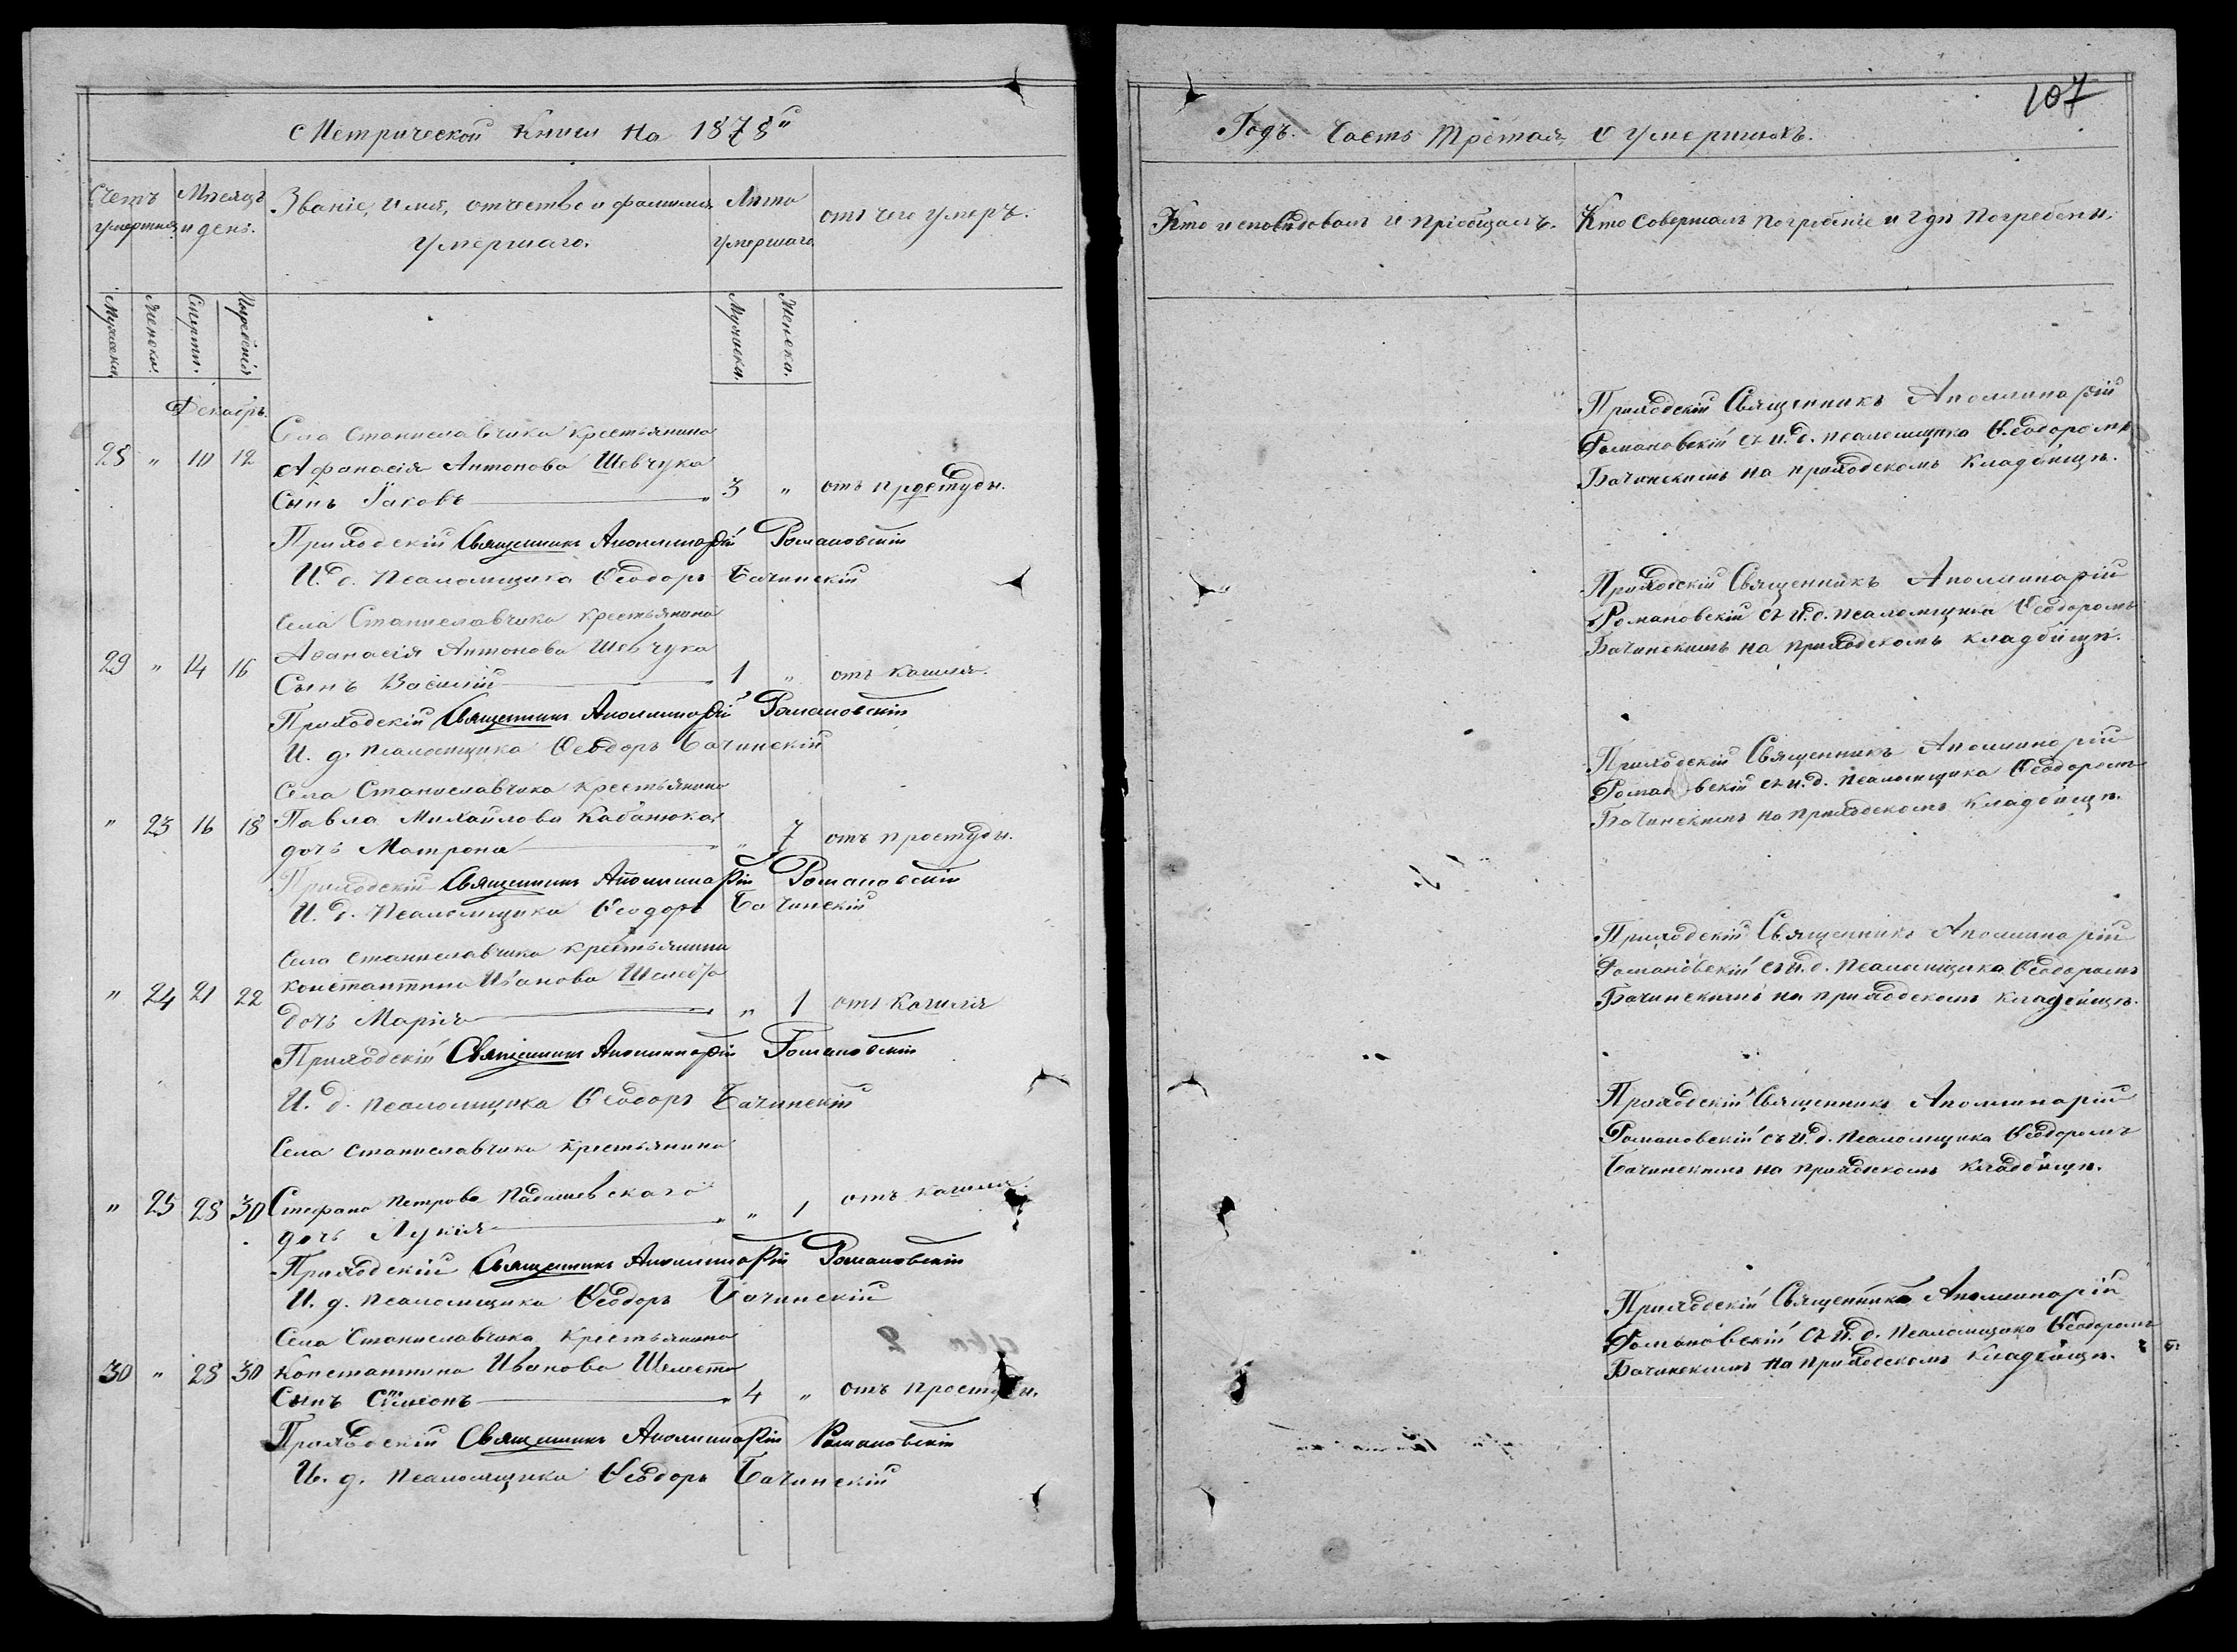 Метрической Книги на 1878й
Счетъ умершихъ
Мѣсяцъ и день.
Званіе, имя, отчество и фамилія умершаго.
Лѣта умершаго
отъ чего умеръ.
Мужеска.
Женска.
Смерти.
Погребенія
Мужеска.
Женска.
Декабрь.
Села Станиславчика крестьянина
28 " 10 12 Афанасія Антонова Шевчука
Сынъ Іаковъ 3 " отъ простуды.
Приходскій Священникъ Аполлинарій Романовскій
И. д. Псаломщика Ѳеодоръ Бачинскій
Села Станиславчика крестьянина
29 " 14 16 Аѳанасія Антонова Шевчука
Сынъ Василій 1 " отъ кашля.
Приходскій Священникъ Аполлинарій Романовскій
И. д. псаломщика Ѳеодоръ Бачинскій
Села Станиславчика крестьянина
" 23 16 18 Павла Михайлова Кабанюка
дочь Матрона " 7 отъ простуды.
Приходскій Священникъ Аполлинарій Романовскій
И. д. Псаломщика Ѳеодоръ Бачинскій
Села Станиславчика крестьянина
" 24 21 22 Константина Иванова
дочь Марія " 1 отъ кашля
Приходскій Священникъ Аполлинарій Романовскій
И. д. псаломщика Ѳеодоръ Бачинскій
Села Станиславчика крестьянина
" 25 28 30 Стефана Петрова
дочь Лукія " 1 отъ кашля.
Приходскій Священникъ Аполлинарій Романовскій
И. д. псаломщика Ѳеодоръ Бачинскій
Села Станиславчика крестьянина
30 " 28 30 Константина Иванова
Сынъ Симеонъ 4 " отъ простуды.
Приходскій Священникъ Аполлинарій Романовскій
И. д. псаломщика Ѳеодоръ Бачинскій
107
Годъ. Часть Третая, о умершихъ.
Кто исповѣдовалъ и пріобщалъ.
Кто совершалъ погребеніе и гдѣ погребены.
Приходскій Священникъ Аполлинарій
Романовскій съ и. д. псаломщика Ѳеодоромъ
Бачинскимъ на приходскомъ кладбищѣ.
Приходскій Священникъ Аполлинарій
Романовскій съ и. д. псаломщика Ѳеодоромъ
Бачинскимъ на приходскомъ кладбищѣ.
Приходскій Священникъ Аполлинарій
Романовскій съ и. д. псаломщика Ѳеодоромъ
Бачинскимъ на приходскомъ кладбищѣ.
Приходскій Священникъ Аполлинарій
Романовскій съ и. д. псаломщика Ѳеодоромъ
Бачинскимъ на приходскомъ кладбищѣ.
Приходскій Священникъ Аполлинарій
Романовскій съ и. д. псаломщика Ѳеодоромъ
Бачинскимъ на приходскомъ кладбищѣ.
Приходскій Священникъ Аполлинарій
Романовскій съ и. д. псаломщика Ѳеодоромъ
Бачинскимъ на приходскомъ кладбищѣ.